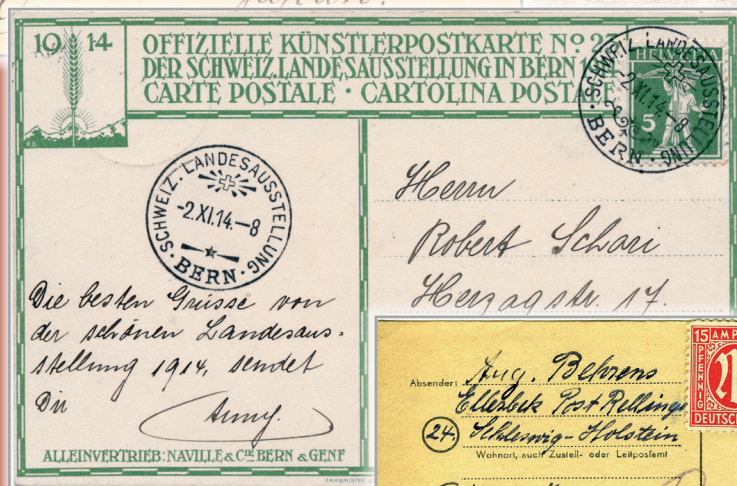 19 14
OFFIZIELLE KÜNSTLERPOSTKARTE No 23
DER SCHWEIZ. LANDESAUSSTELLUNG IN BERN 1
CARTE POSTALE · CARTOLINA POSTALE
HELVETIA
5
SCHWEIZ. LANDESAUSSTELLUNG
-2.XI.14.-8
· BERN ·
SCHWEIZ. LANDESAUSSTELLUNG
-2.XI.14.-8
· BERN ·
Herrn
Robert Schari
Herzogstr. 17.
Die besten Grüsse von
der schönen Landesaus-
stellung 1914, sendet
Dir
ALLEINVERTRIEB: NAVILLE & CIE BERN & GENF
15 AM P
PFENNIG
DEUTSCH
Absender: Aug. Behrens
Ellerbek Post Rellinge
24. Schleswig-Holstein
Wohnort, auch Zustell- oder Leitpostamt